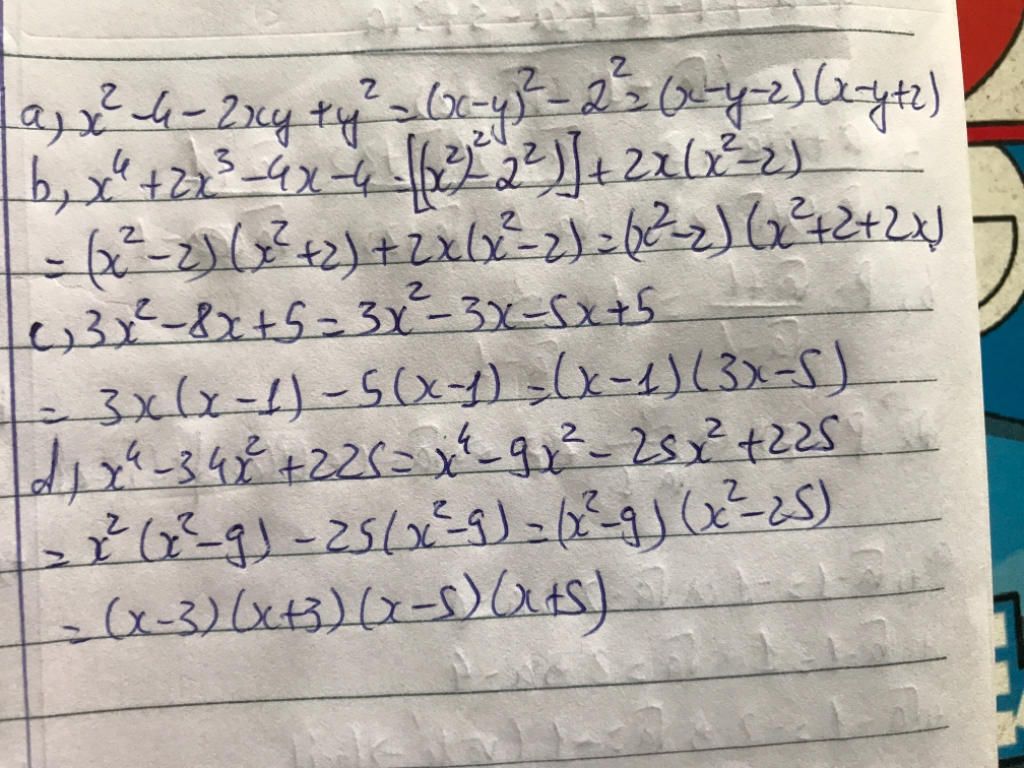 a, x² - 4 - 2xy + y² = (x-y)² - 2² = (x-y-2)(x-y+2)
b, x⁴ + 2x³ - 4x - 4 = [(x²)² - 2²)] + 2x(x²-2)
= (x²-2)(x²+2) + 2x(x²-2) = (x²-2)(x²+2+2x)
c, 3x² - 8x + 5 = 3x² - 3x - 5x + 5
= 3x(x-1) - 5(x-1) = (x-1)(3x-5)
d, x⁴ - 34x² + 225 = x⁴ - 9x² - 25x² + 225
= x²(x²-9) - 25(x²-9) = (x²-9)(x²-25)
= (x-3)(x+3)(x-5)(x+5)